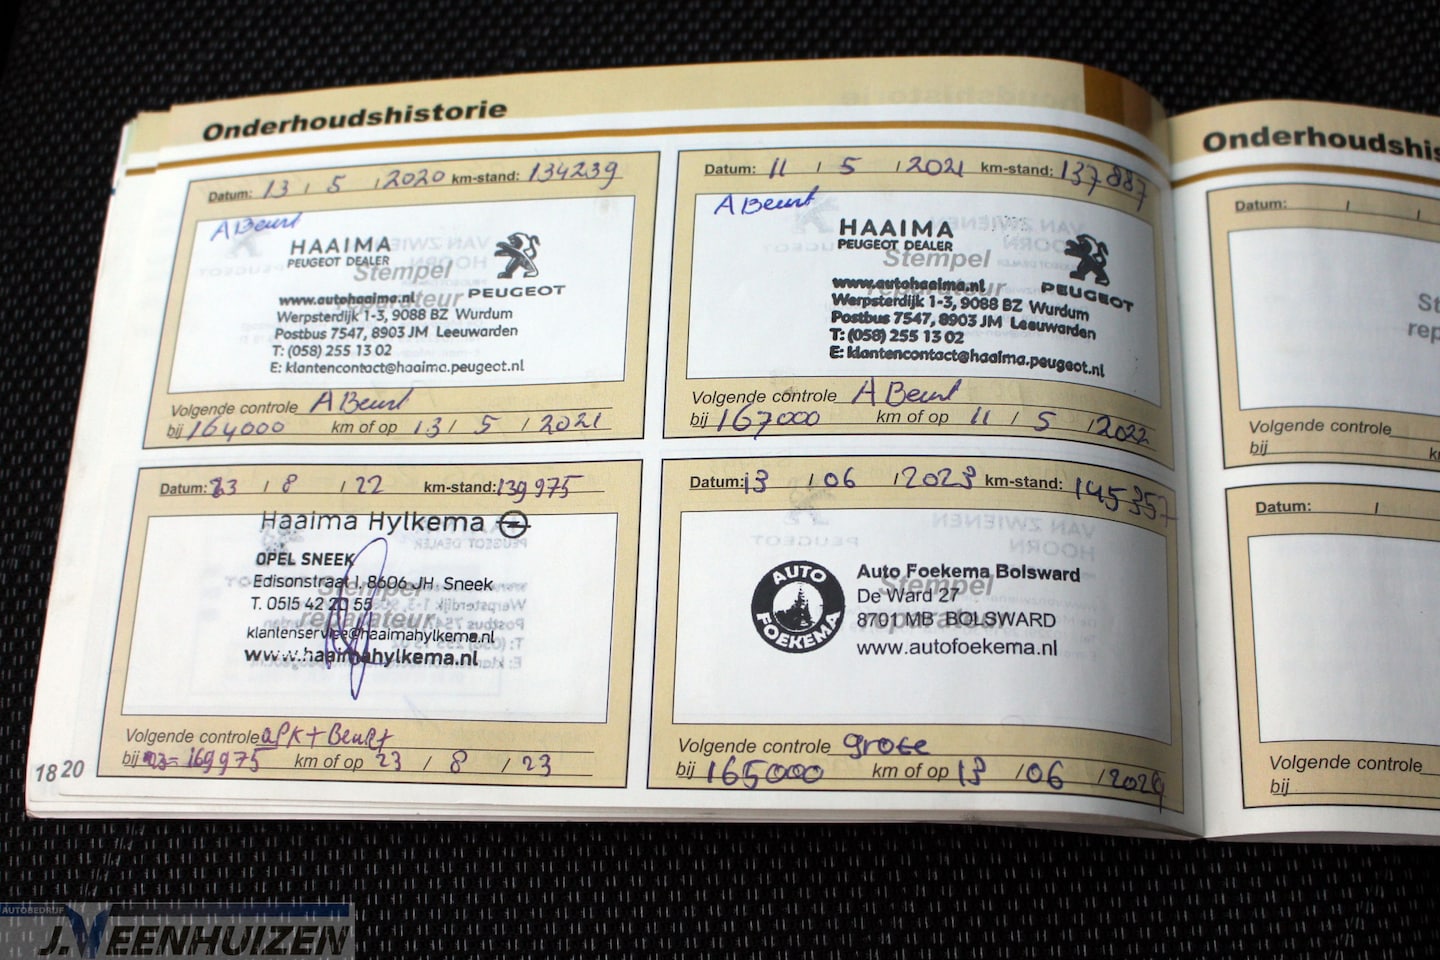 Onderhoudshistorie
Datum: 13 / 5 / 2020 km-stand: 134239
A Beurt
HAAIMA
PEUGEOT DEALER
Stempel
reparateur
PEUGEOT
www.autohaaima.nl
Werpsterdijk 1-3, 9088 BZ Wurdum
Postbus 7547, 8903 JM Leeuwarden
T: (058) 255 13 02
E: klantencontact@haaima.peugeot.nl
Volgende controle A Beurt
bij 164000 km of op 13 / 5 / 2021
Datum: 11 / 5 / 2021 km-stand: 137887
A Beurt
HAAIMA
PEUGEOT DEALER
Stempel
reparateur
PEUGEOT
www.autohaaima.nl
Werpsterdijk 1-3, 9088 BZ Wurdum
Postbus 7547, 8903 JM Leeuwarden
T: (058) 255 13 02
E: klantencontact@haaima.peugeot.nl
Volgende controle A Beurt
bij 167000 km of op 11 / 5 / 2022
Datum: 23 / 8 / 22 km-stand: 139975
Haaima Hylkema
OPEL SNEEK
Edisonstraat 1, 8606 JH Sneek
Stempel
T. 0515 42 20 55
reparateur
klantenservice@haaimahylkema.nl
www.haaimahylkema.nl
Volgende controle APK + Beurt
bij 169975 km of op 23 / 8 / 23
Datum: 13 / 06 / 2023 km-stand: 145357
AUTO
FOEKEMA
Auto Foekema Bolsward
Stempel
De Ward 27
reparateur
8701 MB BOLSWARD
www.autofoekema.nl
Volgende controle grote
bij 165000 km of op 13 / 06 / 2024
18 20
Onderhoudshis
Datum: / /
St
rep
Volgende controle
bij k
Datum: /
Volgende controle
bij
AUTOBEDRIJF
J.VEENHUIZEN